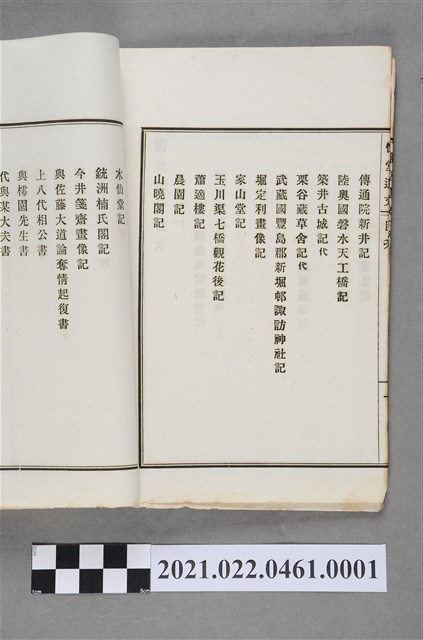 傳通院新井記
陸奧國磐水天工橋記
築井古城記代
栗谷蔵草舍記代
武蔵國豐島郡新堀邨諏訪神社記
堀定利畫像記
家山堂記
玉川渠七橋觀花後記
蕭適樓記
晨園記
山曉閣記
水仙堂記
銃洲楠氏閣記
今井箋齋畫像記
與佐藤大道論奪情起復書
上八代相公書
與樗園先生書
代與某大夫書
2021.022.0461.0001